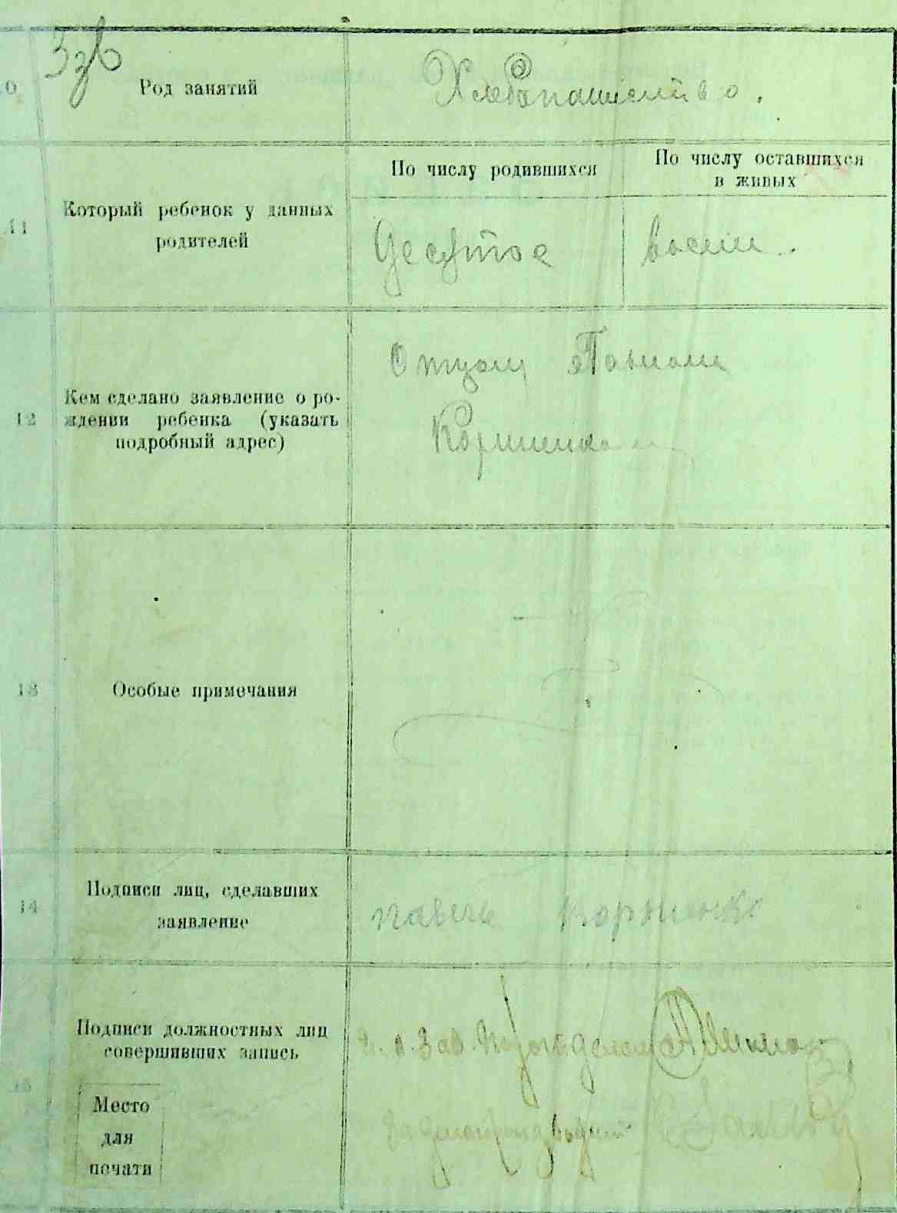 Род занятий
Хлебопашество.
Который ребенок у данных
родителей
По числу родившихся
По числу оставшихся
в живых
Десятое
восем
12
Кем сделано заявление о ро-
ждении ребенка (указать
подробный адрес)
Отцом Павлом
13
Особые примечания
14
Подписи лиц, сделавших
заявление
Павел Корниенко
Подписи должностных лиц
совершивших запись
Место
для
печати